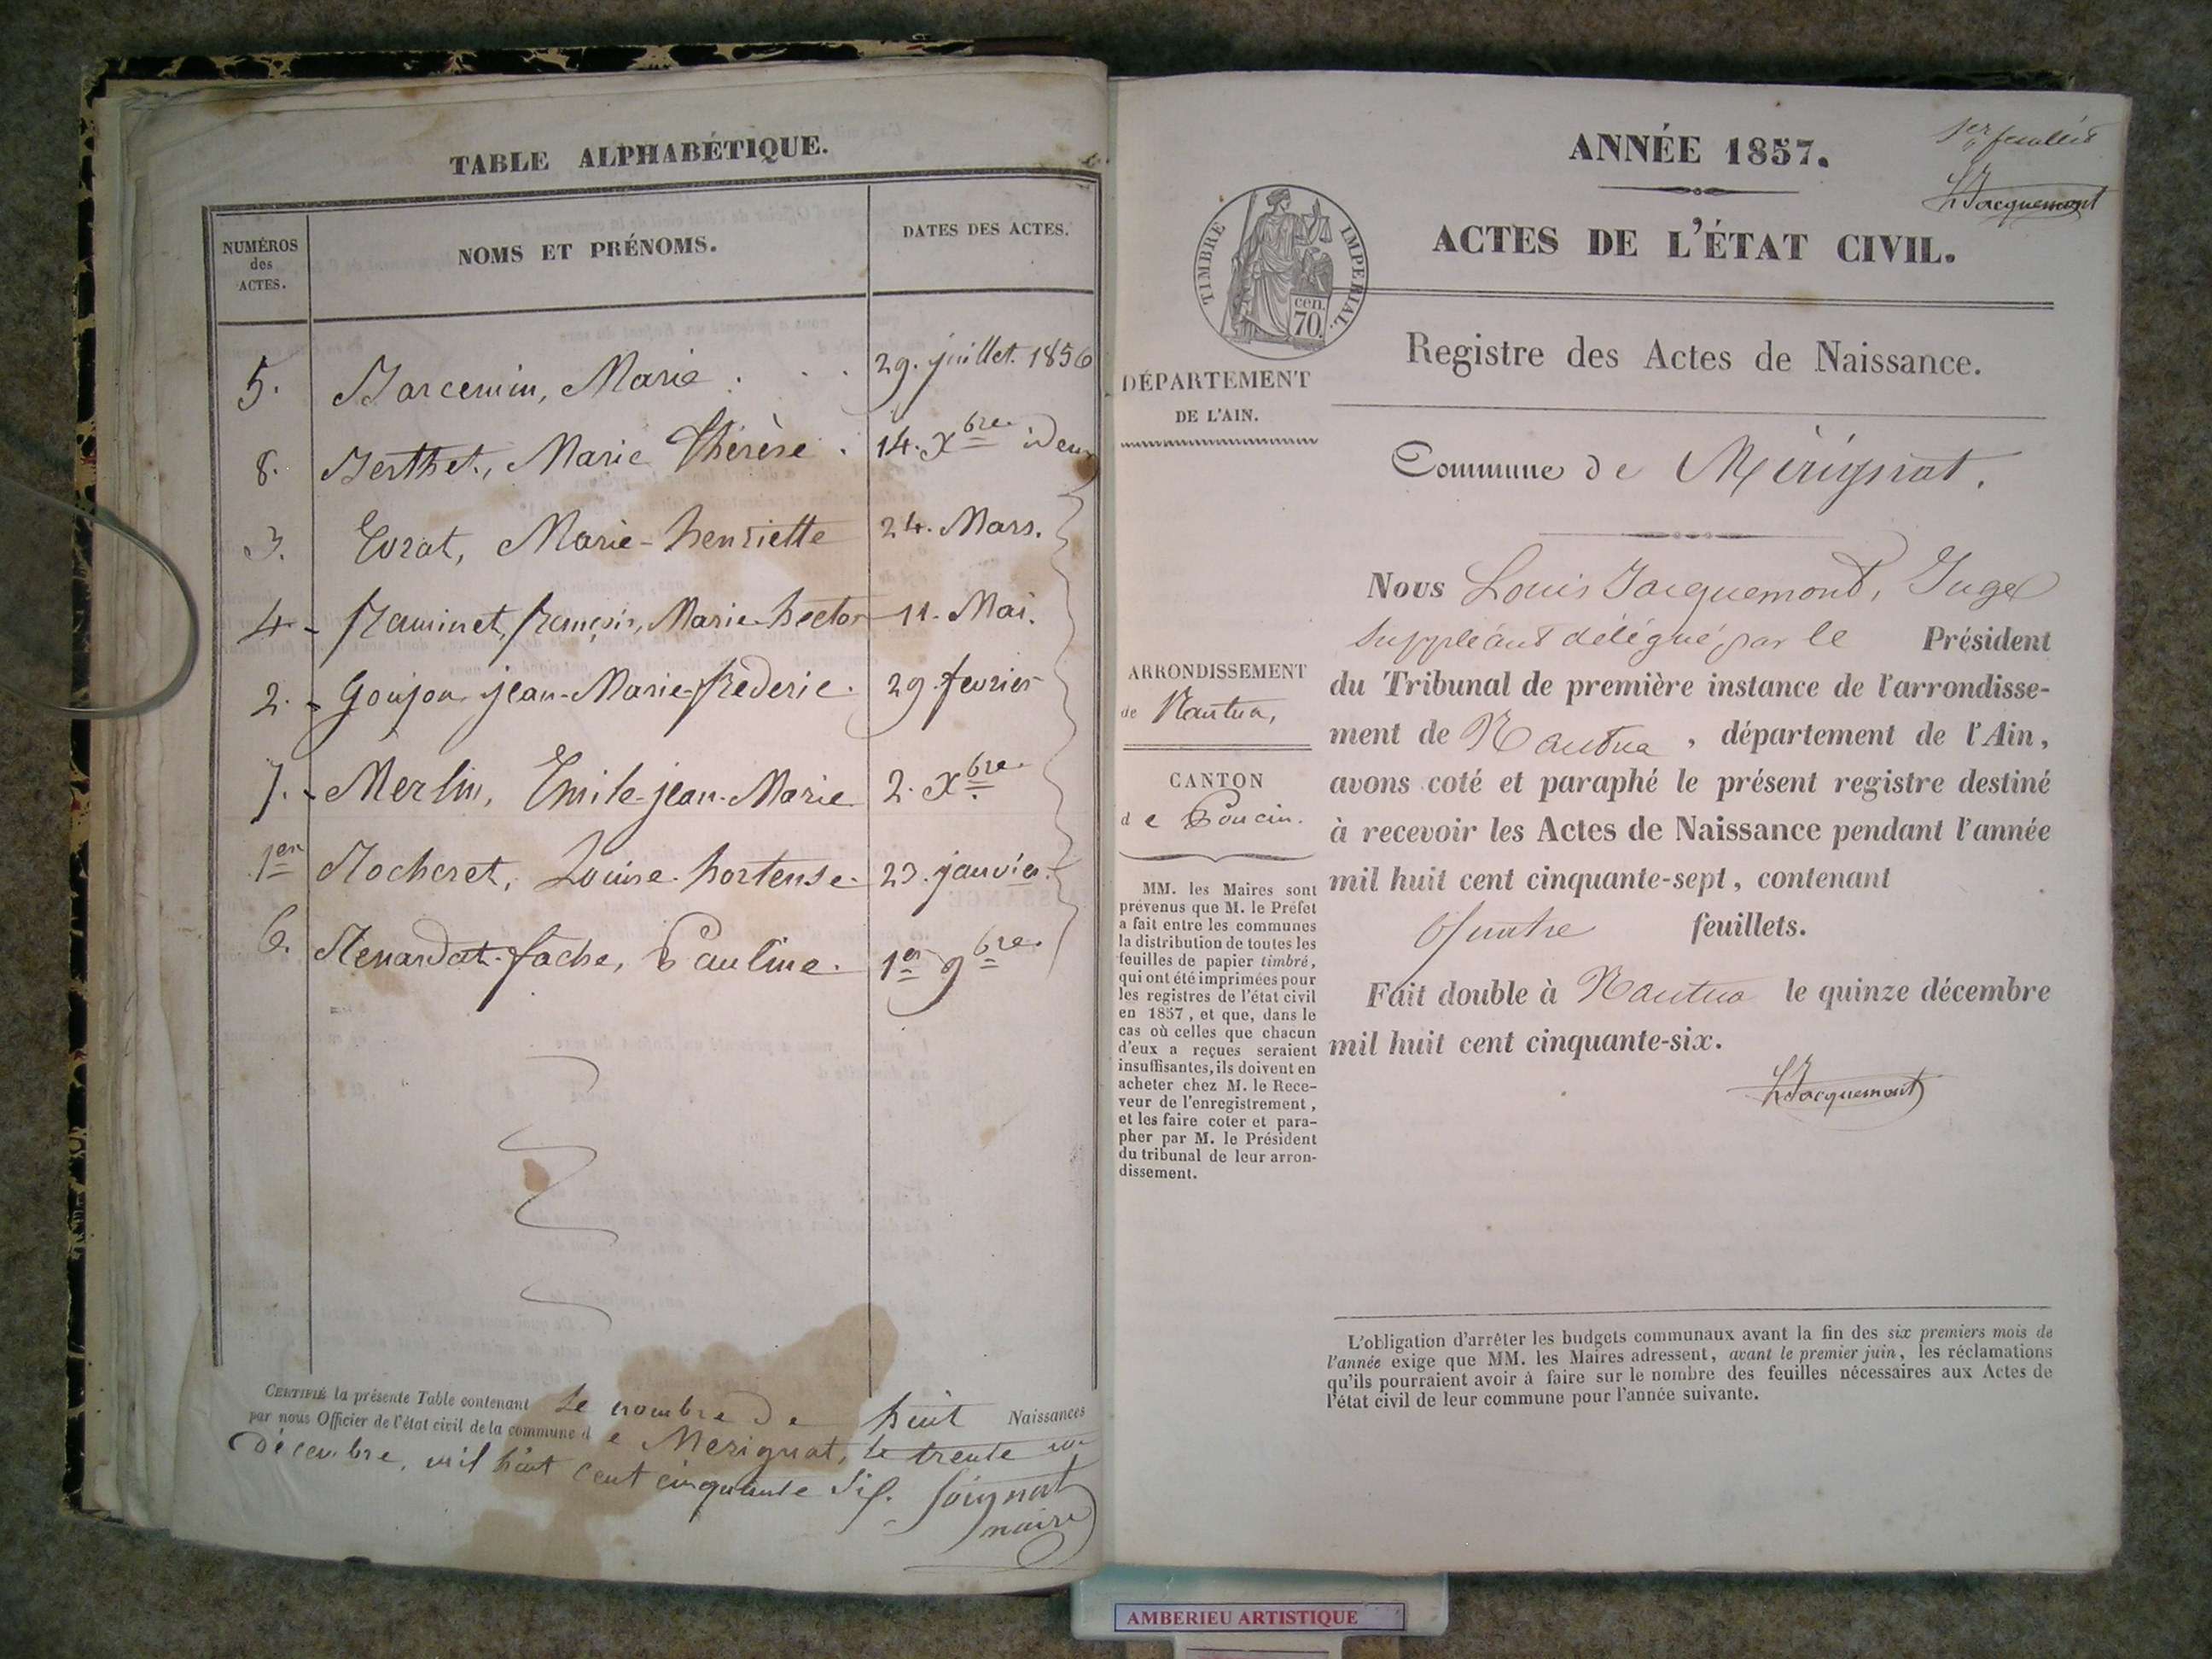 TABLE ALPHABÉTIQUE.
NUMÉROS
des
ACTES.
NOMS ET PRÉNOMS.
DATES DES ACTES.
5. Marie . . . 29. juillet. 1856
8. Berthet, Marie Thérèse . 14. Xbre idem
3. Marie-henriette 24. Mars.
4 - françois, Marie-hector 11. Mai.
2. - Goujon jean-Marie-frederic. 29. fevrier
7. - Merlin, Emile-jean-Marie 2. Xbre
1er Rocheret, Louise-hortense. 23. janvier.
6. Renardat-fache, Pauline. 1er 9bre.
CERTIFIÉ la présente Table contenant le nombre de huit Naissances
par nous Officier de l'état civil de la commune de Merignat, le trente un
décembre, mil huit cent cinquante six.
maire
1er feuillet
LJacquemont
ANNÉE 1857.
ACTES DE L'ÉTAT CIVIL.
TIMBRE IMPERIAL.
cen.
70.
Registre des Actes de Naissance.
DÉPARTEMENT
DE L'AIN.
Commune de Mérignat.
ARRONDISSEMENT
de Nantua,
CANTON
de Poncin.
MM. les Maires sont
prévenus que M. le Préfet
a fait entre les communes
la distribution de toutes les
feuilles de papier timbré,
qui ont été imprimées pour
les registres de l'état civil
en 1857, et que, dans le
cas où celles que chacun
d'eux a reçues seraient
insuffisantes, ils doivent en
acheter chez M. le Rece-
veur de l'enregistrement,
et les faire coter et para-
pher par M. le Président
du tribunal de leur arron-
dissement.
Nous Louis Jacquemont, Juge
Suppléant délégué par le Président
du Tribunal de première instance de l'arrondisse-
ment de Nantua, département de l'Ain,
avons coté et paraphé le présent registre destiné
à recevoir les Actes de Naissance pendant l'année
mil huit cent cinquante-sept, contenant
Quatre feuillets.
Fait double à Nantua le quinze décembre
mil huit cent cinquante-six.
LJacquemont
L'obligation d'arrêter les budgets communaux avant la fin des six premiers mois de
l'année exige que MM. les Maires adressent, avant le premier juin, les réclamations
qu'ils pourraient avoir à faire sur le nombre des feuilles nécessaires aux Actes de
l'état civil de leur commune pour l'année suivante.
AMBERIEU ARTISTIQUE